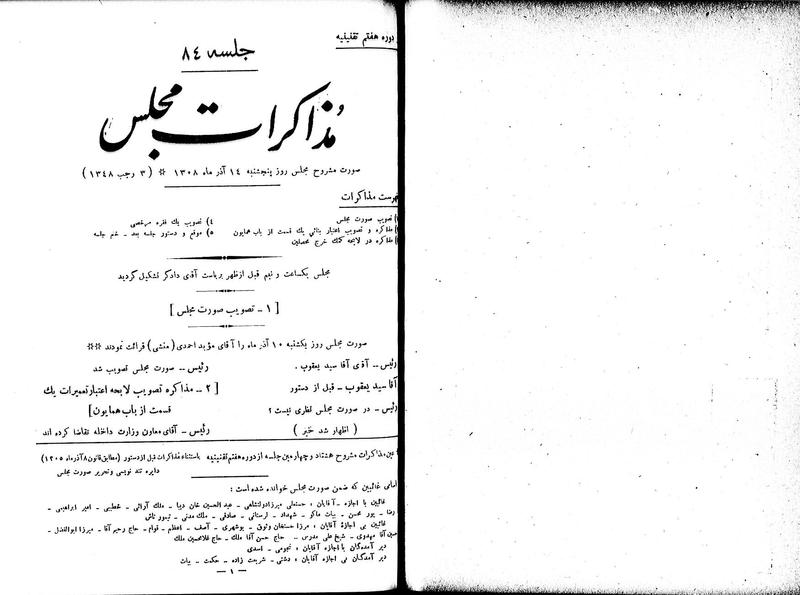 دوره هفتم تقنینیه
جلسه ۸٤
مذاکرات مجلس
صورت مشروح مجلس روز پنجشنبه ۱٤ آذر ماه ۱۳۰۸ * ( ۳ رجب ۱۳٤۸ )
فهرست مذاکرات
تصویب صورت مجلس
مذاکره و تصویب اعتبار بنائی یك قسمت از باب همایون
مذاکره در لایحه کمك خرج محصلین
٤) تصویب یك فقره مرخصی
٥) موقع و دستور جلسه بعد - ختم جلسه
مجلس یکساعت و نیم قبل از ظهر بریاست آقای دادگر تشکیل گردید
[ ۱ ـ تصویب صورت مجلس ]
صورت مجلس روز یکشنبه ۱۰ آذر ماه را آقای مؤید احمدی (منشی) قرائت نمودند **
رئیس ـ آقای آقا سید یعقوب .
آقا سید یعقوب ـ قبل از دستور
رئیس ـ در صورت مجلس نظری نیست ؟
( اظهار شد خیر )
رئیس ـ صورت مجلس تصویب شد
[ ۲ ـ مذاکره تصویب لایحه اعتبار تعمیرات یك
قسمت از باب همایون]
رئیس ـ آقای معاون وزارت داخله تقاضا کرده اند
عین مذاکرات مشروح هشتاد و چهارمین جلسه از دوره هفتم تقنینیه باستثناء مذاکرات قبل از دستور (مطابق قانون ۸ آذر ماه ۱۳۰٥)
دایره تند نویسی و تحریر صورت مجلس
اسامی غائبین که ضمن صورت مجلس خوانده شده است :
غائبین با اجازه ـ آقایان : حسنعلی میرزا دولتشاهی ـ عبد الحسین خان دیبا ـ ملك آرائی ـ خطیبی ـ امیر ابراهیمی ـ
رضا ـ پور محسن ـ بیات ماکو ـ شهداد ـ لرستانی ـ صادقی ـ ملك مدنی ـ تیمور تاش
غائبین بی اجازه آقایان : میرزا حسنخان وثوق ـ بوشهری ـ آصف ـ اعظم ـ قوام ـ حاج رحیم آقا ـ میرزا ابوالفضل ـ
حسن آقا مهدوی ـ شیخ علی مدرس ـ حاج حسن آقا ملك ـ حاج غلامحسین ملك
دیر آمدگان با اجازه آقایان : نجومی ـ اسدی
دیر آمدگان بی اجازه آقایان : دشتی ـ شریعت زاده ـ حکمت ـ بیات
ـ ۱ ـ